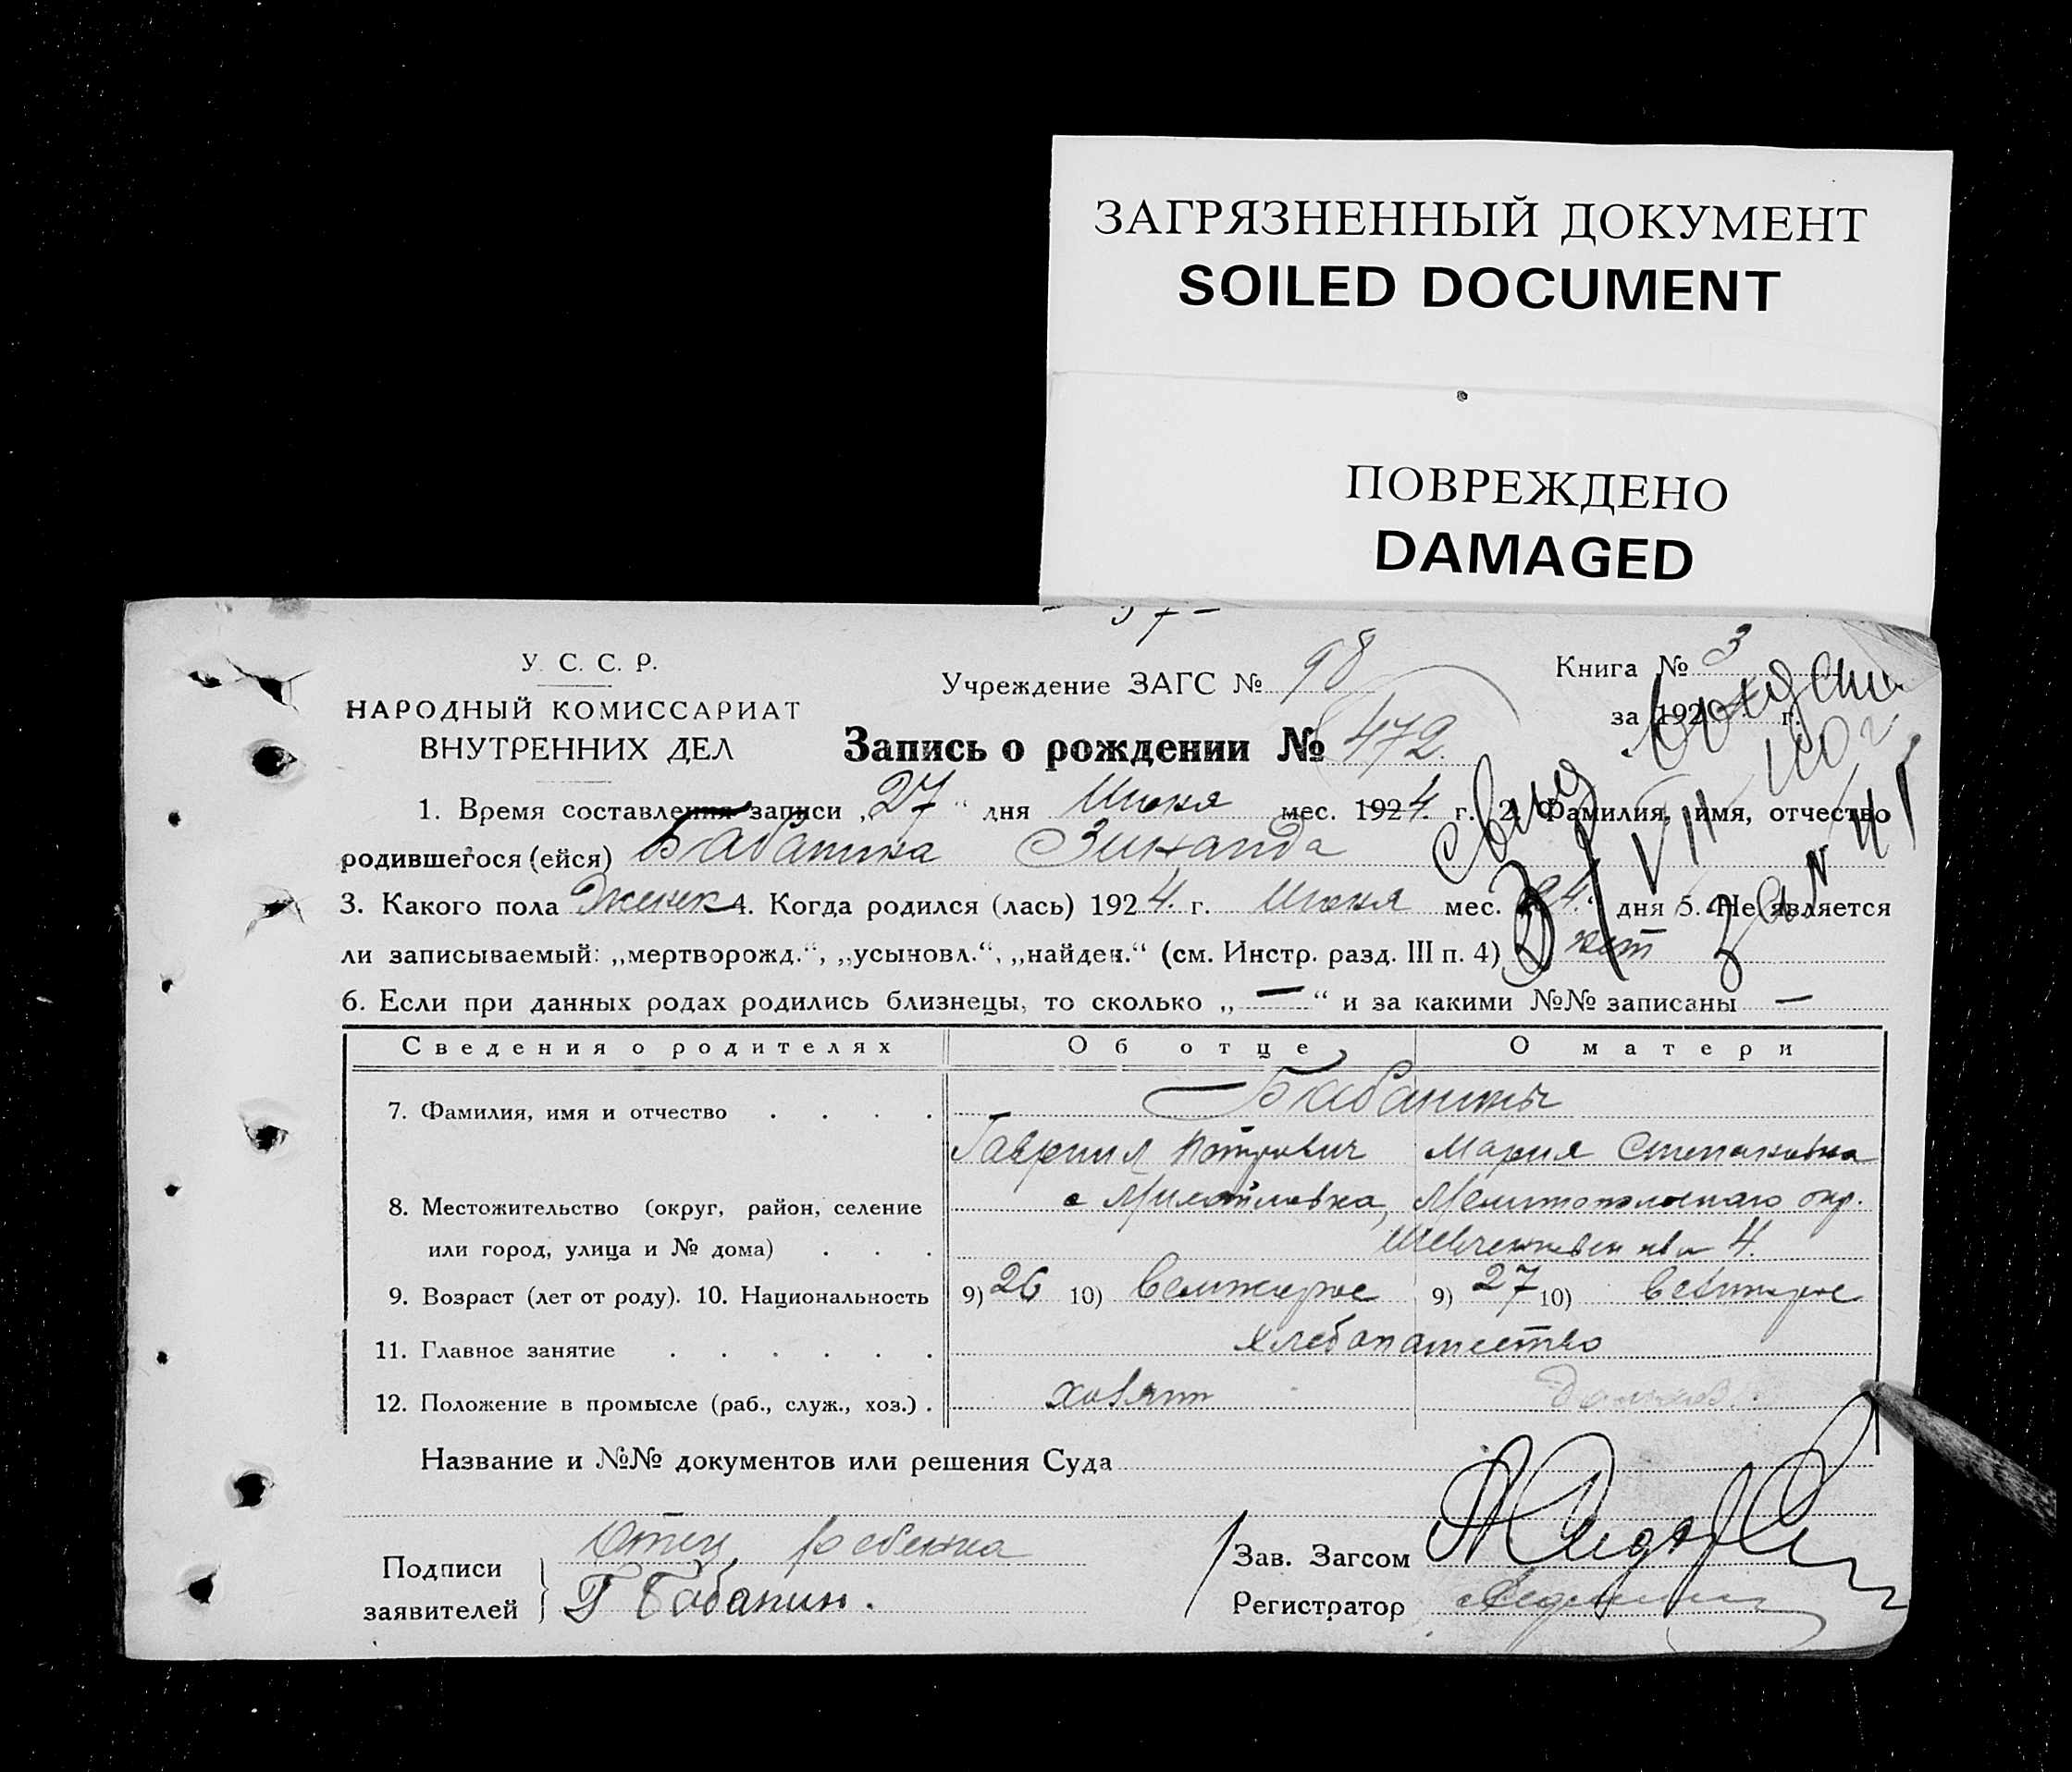 ЗАГРЯЗНЕННЫЙ ДОКУМЕНТ
SOILED DOCUMENT
ПОВРЕЖДЕНО
DAMAGED
У. С. С. Р.
НАРОДНЫЙ КОМИССАРИАТ
ВНУТРЕННИХ ДЕЛ
Учреждение ЗАГС № 98
Книга № 3
за 192 г.
Запись о рождении № 472.
1. Время составления записи „27" дня Июня мес. 1924 г. 2. Фамилия, имя, отчество
родившегося (ейся) Бабанина Зинаида
3. Какого пола Женск 4. Когда родился (лась) 1924 г. Июня мес. 24" дня 5. Не является
ли записываемый: „мертворожд.", „усыновл.", „найден." (см. Инстр. разд. III п. 4) нет
6. Если при данных родах родились близнецы, то сколько „—" и за какими №№ записаны —
Сведения о родителях Об отце О матери
7. Фамилия, имя и отчество . . . . Бабанины
Гавриил Петрович Мария Степановна
8. Местожительство (округ, район, селение Мелитопольского окр.
или город, улица и № дома) . . . 4.
9. Возраст (лет от роду). 10. Национальность 9) 26 10) 9) 27 10)
11. Главное занятие . . . . . . хлебопашество
12. Положение в промысле (раб., служ., хоз.) .
Название и №№ документов или решения Суда
Подписи
заявителей
Отец ребенка
Г Бабанин.
Зав. Загсом
Регистратор